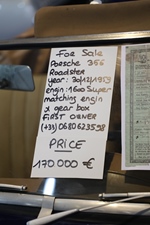 For Sale
Porsche 356
Roadster
year: 30/12/1959
engin: 1600 Super
matching engin
x gear box
FIRST OWNER
(+33) 0680623598
PRICE
170 000 €